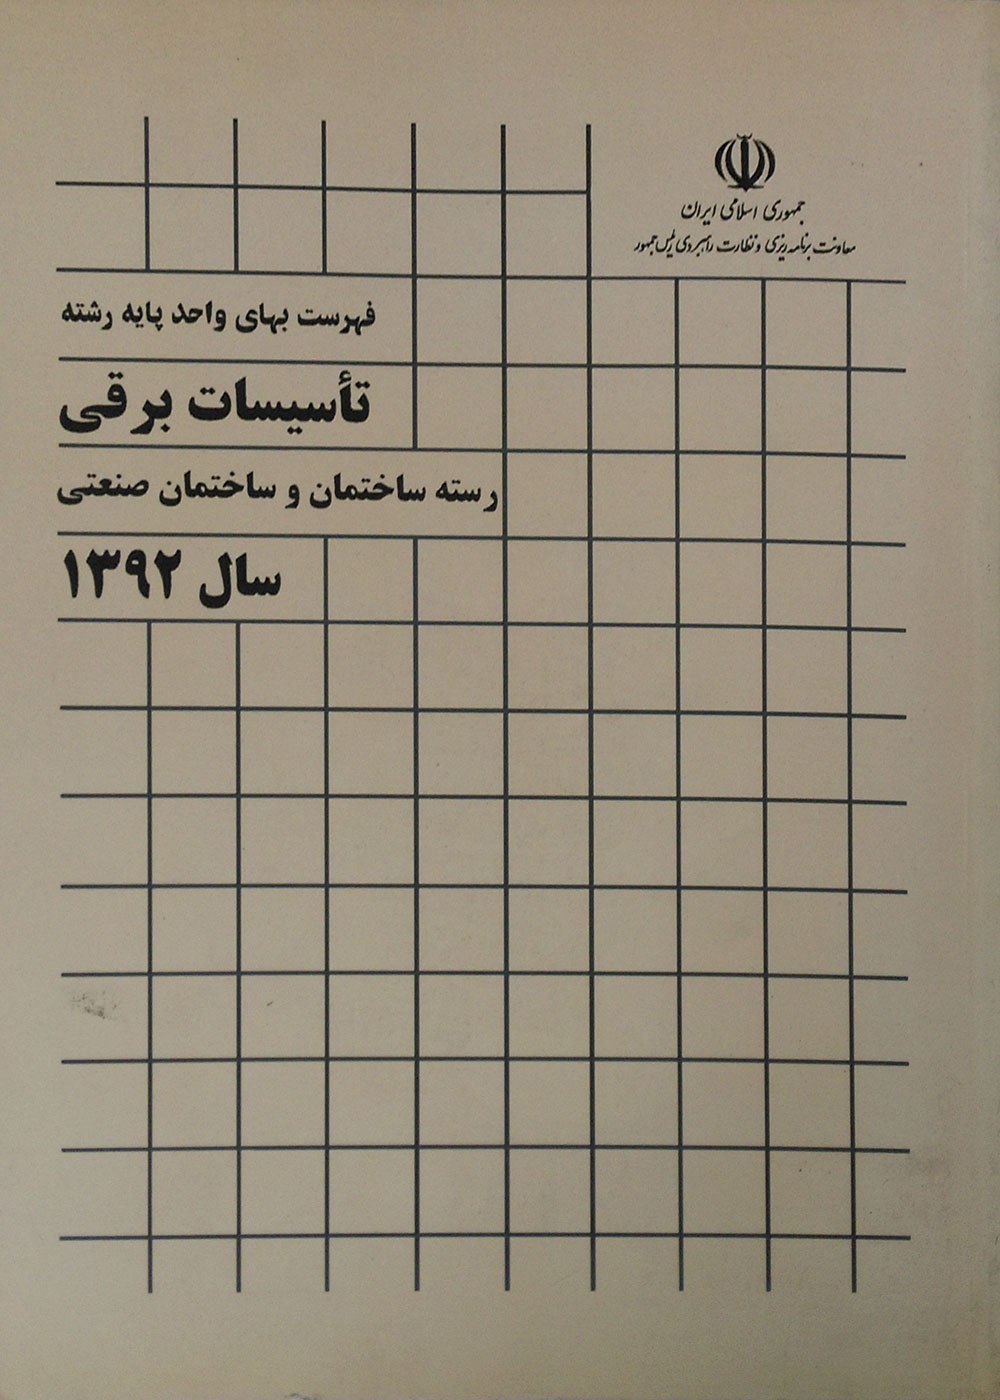 جمهوری اسلامی ایران
معاونت برنامه‌ریزی و نظارت راهبردی رئیس‌جمهور
فهرست بهای واحد پایه رشته
تأسیسات برقی
رسته ساختمان و ساختمان صنعتی
سال ۱۳۹۲